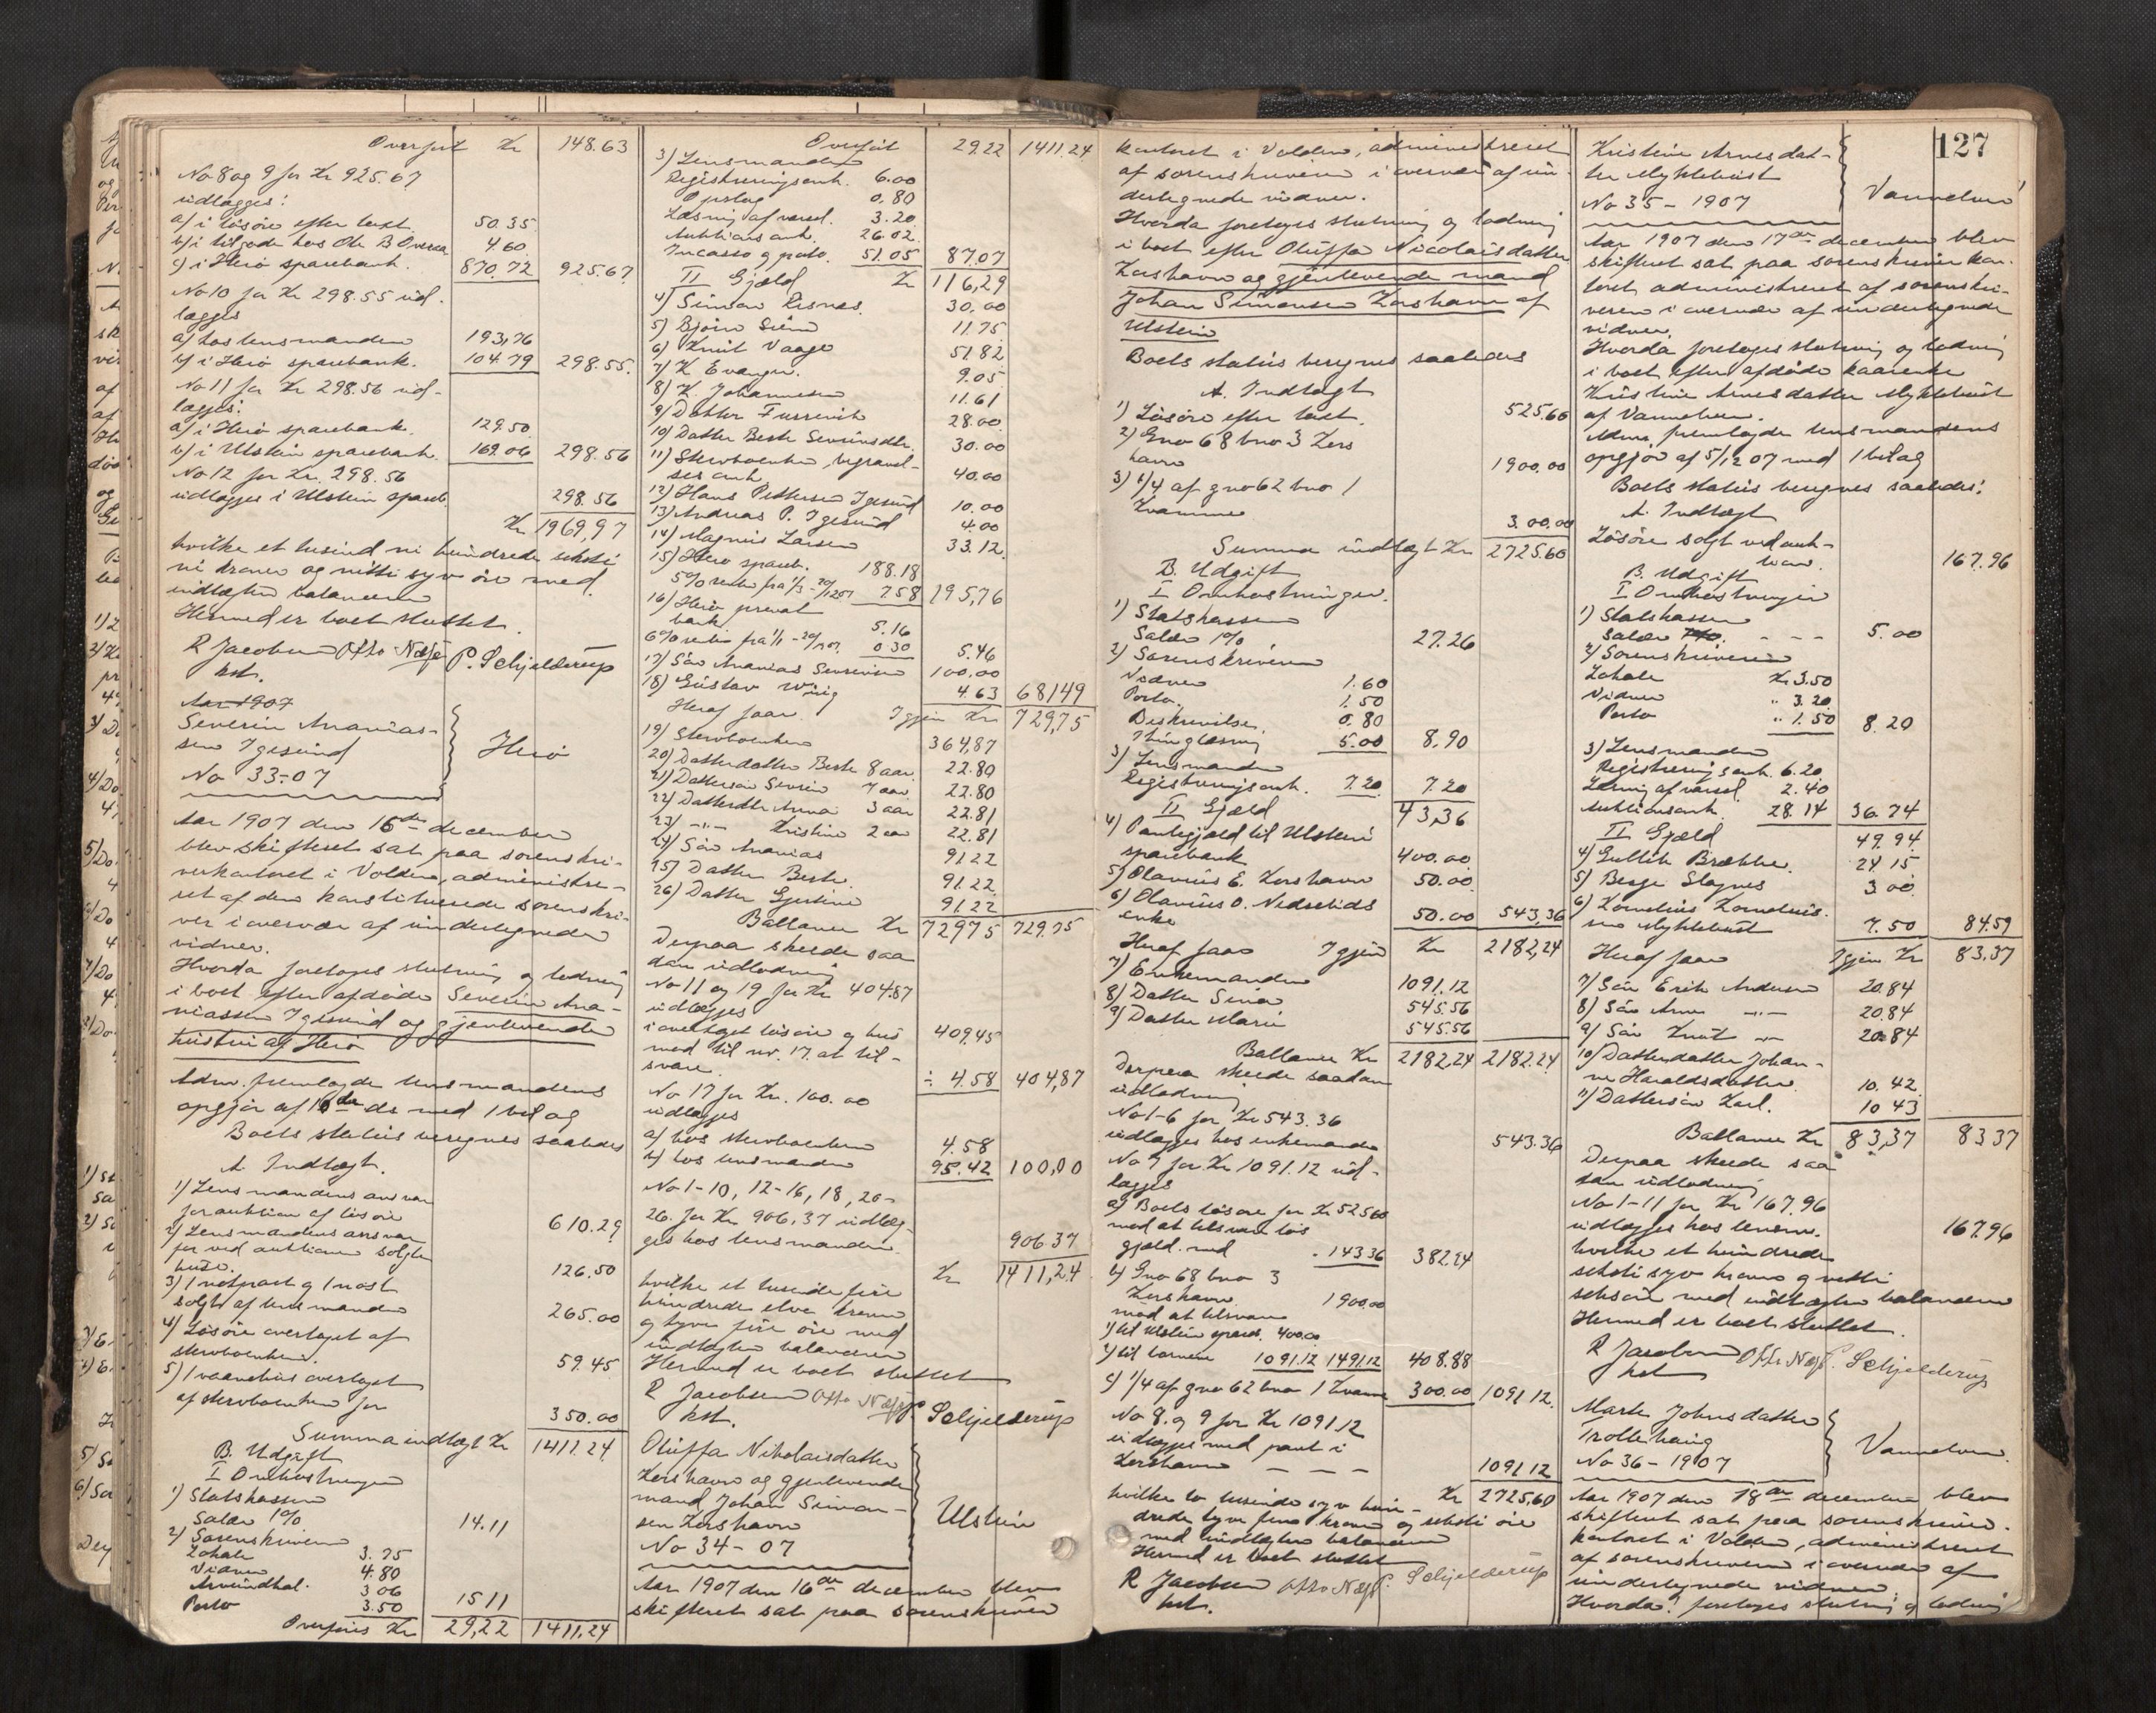 Overført Kr 148.63
No 8 og 9 for Kr 925.67
udlægges:
a) i løsøre efter taxt 50.35
b) i tilgode hos Ole B 4.60
c) i Herø sparebank. 870.72 925.67
No 10 for Kr 298.55 ud-
lægges
a) hos lensmanden 193,76
b) i Herø sparebank. 104.79 298.55.
No 11 for Kr 298.56 ud-
lægges:
a) i Herø sparebank. 129.50
b) i Ulstein sparebank 169.06 298.56
No 12 for Kr. 298.56
udlægges i Ulstein spareb. 298.56
Kr 1969,97
hvilke et tusind ni hundrede seksti
ni kroner og nitti syv øre med
indtægten balancerer
Hermed er boet sluttet.
R Jacobsen Otto Næss P. Schjelderup
kst.
Aar 1907
Severin Ananias-
sen Igesund
No 33-07
Herø
Aar 1907 den 16de december
blev skifteret sat paa sorenskri-
verkontoret i Volden, administre-
ret af den konstituerede sorenskri-
ver i overvær af undertegnede
vidner.
Hvorda foretoges slutning og lodning
i boet efter afdøde Severin Ana-
niassen Igesund og gjenlevende
hustru af Herø
Adm. fremlagde lensmandens
opgjør af 16de ds med 1 bilag
Boets status beregnes saaledes
A. Indtægt.
1) Lensmandens ansvar
for auktion af løsøre 610.29
2) Lensmandens ansvar
for ved auktionen solgte
huse. 126.50
3) 1 notpart og 1 nøst
solgt af lensmanden 265.00
4) Løsøre overtaget af
stervboenken. 59.45
5) 1 vaanehus overtaget
af stervboenken for 350.00
Summa indtægt Kr 1411.24
B. Udgift
I Omkostninger
1) Statskassen
Salær 1% 14.11
2) Sorenskriveren
Lokale 3.75
Vidner 4.80
3.06
Porto 3.50 15.11
Overføres Kr 29,22 1411.24
Overført 29.22 1411.24
3) Lensmanden
Registreringsautk. 6.00
Opslag 0.80
Læsning af varsel. 3.20
Auktions autk. 26.02
Incasso og porto. 51.05 87.07
II Gjæld Kr 116,29
4) Simon Risnes. 30.00
5) Bjørn 11.75
6) Knut Vaage 51.82
7) K Evangen. 9.05
8) K. Johannesen 11.61
9) Doktor 28.00
10) Datter Berte Severinsdtr. 30.00
11) Stervboenken, begravel-
ses autk. 40.00
12) Hans Pettersen Igesund 10.00
13) Andreas P. Igesund 4.00
14) Magnus Larsen 33.12
15) Herø spareb. 188.18
5% rente fra 1/3 - 20/12 07 7.58 195,76
16) Herø privat
bank 5.16
6% rente fra 1/1 - 20/12 07. 0.30 5.46
17) Søn Ananias Severinsen 100,00
18) Gustav Wiig 4.63 681,49
Heraf faar Igjen Kr 729,75
19) Stervboenken 364,87
20) Datterdatter Berte 8 aar. 22.80
21) Dattersøn Severin 7 aar 22.80
22) Datterdtr Anna 3 aar 22.81
23) -"- Kristine 2 aar 22.81
24) Søn Ananias 91.22
25) Datter Berte 91.22
26) Datter Gjertine 91.22
Ballance Kr 729,75 729.75
Derpaa skeede saa
dan udlodning
No 11 og 19 for Kr 404.87
udlægges
i overtaget løsøre og hus 409,45
med til nr. 17 at til-
svare ÷ 4.58 404,87
No 17 for Kr. 100.00
udlægges
a) hos stervboenken 4.58
b) hos lensmanden 95.42 100,00
No 1-10, 12-16, 18, 20-
26. for Kr 906,37 udlæg-
ges hos lensmanden. 906.37
Kr 1411,24
hvilke et tusinde fire
hundrede elve kroner
og tyve fire øre med
indtægten balancerer
Hermed er boet sluttet
R Jacobsen Otto Næss P. Schjelderup
kst.
Oluffa Nikolaisdatter
Korshavn og gjenlevende
mand, Johan Simon-
sen Korshavn
No 34-07
Ulstein
Aar 1907 den 16de december blev
skifteret sat paa sorenskriver
kontoret i Volden, administreret
af sorenskriveren i overvær af un-
dertegnede vidner.
Hvorda foretoges slutning og lodning
i boet efter Oluffa Nicolaisdatter
Korshavn og gjenlevende mand
Johan Simonsen Korshavn af
Ulstein
Boets status beregnes saaledes
A. Indtægt
1) Løsøre efter taxt. 525.60
2) Gno 68 bno 3 Kors
havn 1900.00
3) 1/4 af gno 62 bno 1
Kvamme 3.00.00
Summa indtægt Kr 2725.60
B. Udgift
I Omkostninger.
1) Statskassen
Salær 1% 27.26
2) Sorenskriveren
Vidner 1.60
Porto. 1.50
Beskrivelse. 0.80
Thinglæsning 5.00 8.90
3) Lensmanden
Registreringsautk. 7.20 7.20
II Gjæld 43,36
4) Pantegjæld til Ulstein
sparebank 400.00
5) Olavius E. Korshavn 50.00
6) Olavius O. Nedrelids
enke 50.00 543,36
Heraf faar Igjen Kr 2182,24
7) Enkemanden 1091.12
8) Datter Sina 545.56
9) Datter Marie 545.56
Ballance Kr 2182,24 2182.24
Derpaa skeede saadan
udlodning
No 1-6 for Kr 543.36
udlægges hos enkemanden 543.36
No 7 for Kr 1091.12 ud-
lægges
a) Boets løsøre for Kr 525.60
med at tilsvare løs
gjæld med " 143.36 382.24
b) Gno 68 bno 3
Korshavn 1900.00
mod at tilsvare
1) til Ulstein spareb. 400.00
2) til børnene 1091.12 1491.12 408.88
c) 1/4 af gno 62 bno 1 Kvamme 300.00 1091.12.
No 8 og 9 for Kr 1091.12
udlægges med pant i
Korshavn - - - 1091.12
Kr 2725,60
hvilke to tusinde syv hun-
drede tyve fem kroner og seksti øre
med indtægten balancerer
Hermed er boet sluttet
R Jacobsen Otto Næss P. Schjelderup
kst.
127
Kristine Arnesdat-
ter Myklebust
No 35-1907
Vannelven
Aar 1907 den 17de december blev
skifteret sat paa sorenskriverkon-
toret administreret af sorenskri-
veren i overvær af undertegnede
vidner.
Hvorda foretoges slutning og lodning
i boet efter afdøde kaarenke
Kristine Arnesdatter Myklebust
af Vannelven.
Adm. fremlagde lensmandens
opgjør af 5/12 07 med 1 bilag
Boets status beregnes saaledes:
A. Indtægt
Løsøre solgt ved auk-
tion. 167.96
B. Udgift
I Omkostninger
1) Statskassen
Salær - - - 5.00
2) Sorenskriveren
Lokale Kr 3.50
Vidner " 3.20
Porto " 1.50 8.20
3) Lensmanden
Registreringsautk. 6.20
Læsning af varsel. 2.40
Auktionsautk. 28.14 36.74
II Gjæld 49.94
4) Gullik Brække. 24.15
5) Berge Slagnes 3.00
6) Kornelius Kornelius-
sen Myklebust 7.50 84.59
Heraf faar Igjen Kr 83,37
7) Søn Erik Andersen 20.84
8) Søn Arne -"- 20.84
9) Søn Knut -"- 20.84
10) Datterdatter Johan-
ne Haraldsdatter 10.42
11) Dattersøn Karl. 10.43
Ballance Kr 83,37 83.37
Derpaa skeede saa
dan udlodning
No 1-11 for Kr 167.96
udlægges hos lensm. 167.96
hvilke et hundrede
seksti syv kroner og nitti
seks øre med indtægten balancerer
Hermed er boet sluttet.
R Jacobsen Otto Næss P. Schjelderup
kst
Marte Johnsdatter
Trollehaug
No 36-1907
Vannelven.
Aar 1907 den 18de december blev
skifteret sat paa sorenskriver-
kontoret i Volden, administreret
af sorenskriveren i overvær af
undertegnede vidner.
Hvorda: foretoges slutning og lodning